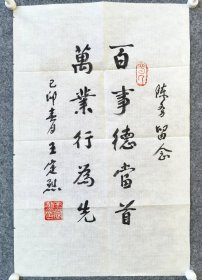 陈芳留念
百事德當首
萬業行為先
己卯春月王定烈